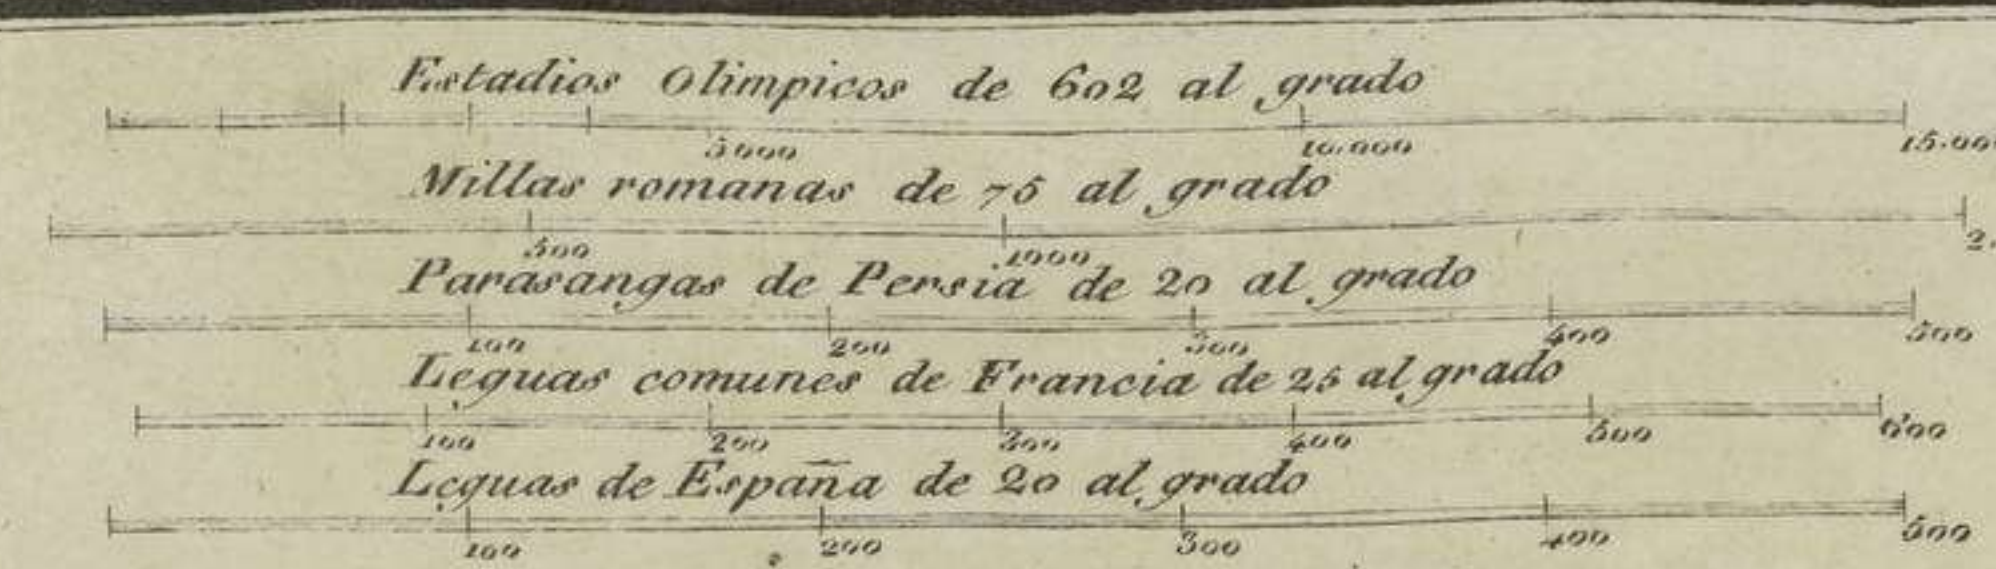 Estadios Olimpicos de 602 al grado
5000 10.000
Millas romanas de 75 al grado
500 1000
Parasangas de Persia de 20 al grado
100 200 300 400 500
Leguas comunes de Francia de 25 al grado
100 200 300 400 500 600
Leguas de España de 20 al grado
100 200 300 400 500